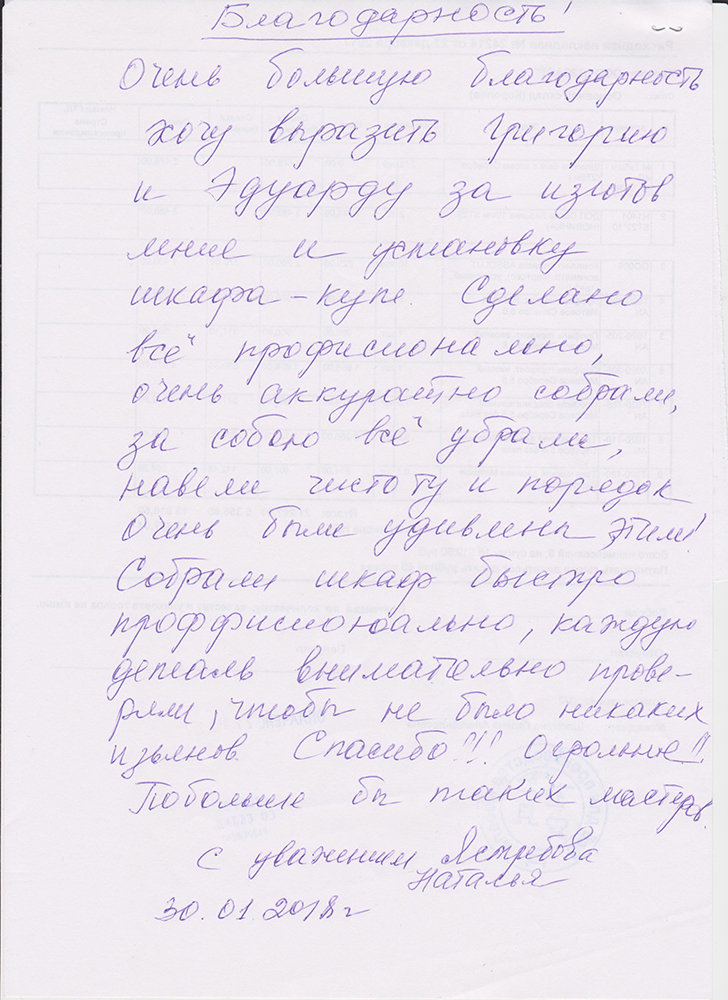 Благодарность!
Очень большую благодарность
хочу выразить Григорию
и Эдуарду за изготов
ление и установку
шкафа-купе. Сделано
всё профисионально,
очень аккуратно собрали,
за собою всё убрали,
навели чистоту и порядок
Очень были удивлены этим!
Собрали шкаф быстро
проффисионально, каждую
деталь внимательно прове-
ряли, чтобы не было никаких
изьянов. Спасибо!!! Огромное!!
Побольше бы таких мастеров.
С уважением Ястребова
Наталья
30.01.2018г